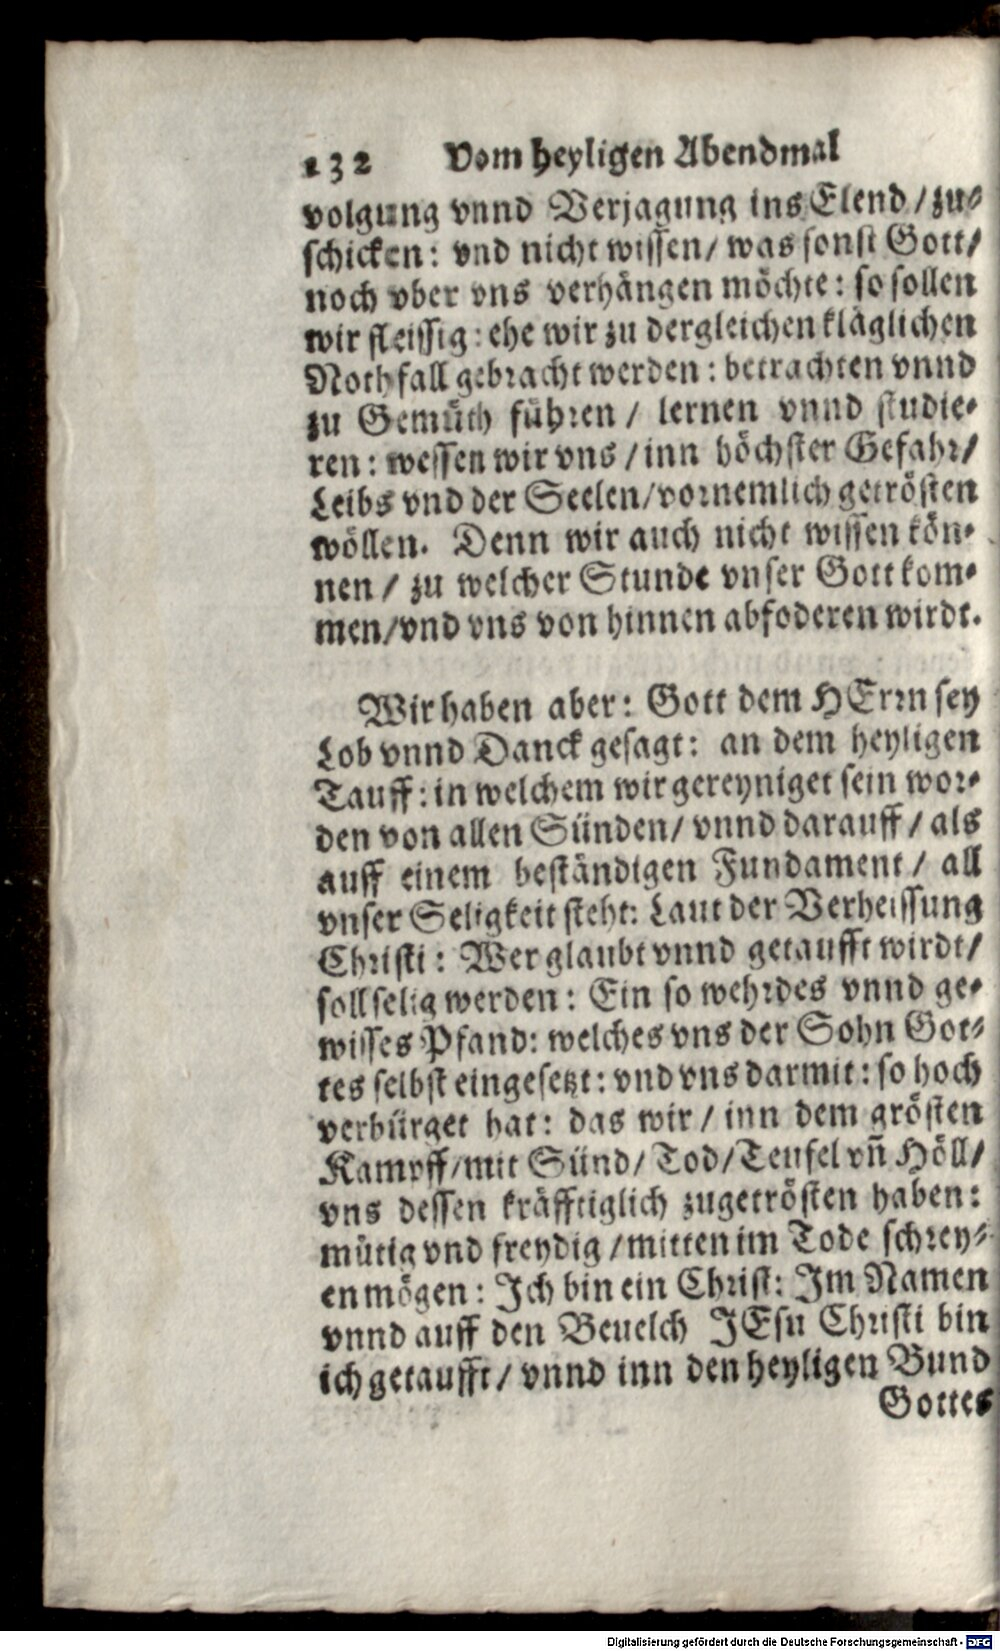 132 Vom heyligen Abendmal
volgung vnnd Verjagung ins Elend / zu-
schicken: vnd nicht wissen / was sonst Gott /
noch vber vns verhängen möchte: so sollen
wir fleissig: ehe wir zu dergleichen kläglichen
Nothfall gebracht werden: betrachten vnnd
zu Gemüth führen / lernen vnnd studie-
ren: wessen wir vns / inn höchster Gefahr /
Leibs vnd der Seelen / vornemlich getrösten
wöllen. Denn wir auch nicht wissen kön-
nen / zu welcher Stunde vnser Gott kom-
men / vnd vns von hinnen abfoderen wirdt.
Wir haben aber: Gott dem HErrn sey
Lob vnnd Danck gesagt: an dem heyligen
Tauff: in welchem wir gereyniget sein wor-
den von allen Sünden / vnnd darauff / als
auff einem beständigen Fundament / all
vnser Seligkeit steht: Laut der Verheissung
Christi: Wer glaubt vnnd getaufft wirdt /
soll selig werden: Ein so wehrdes vnnd ge-
wisses Pfand: welches vns der Sohn Got-
tes selbst eingesetzt: vnd vns darmit: so hoch
verbürget hat: das wir / inn dem grösten
Kampff / mit Sünd / Tod / Teufel vn̄ Höll /
vns dessen kräfftiglich zugetrösten haben:
mütig vnd freydig / mitten im Tode schrey-
en mögen: Ich bin ein Christ: Im Namen
vnnd auff den Beuelch JEsu Christi bin
ich getaufft / vnnd inn den heyligen Bund
Gottes
Digitalisierung gefördert durch die Deutsche Forschungsgemeinschaft - DFG